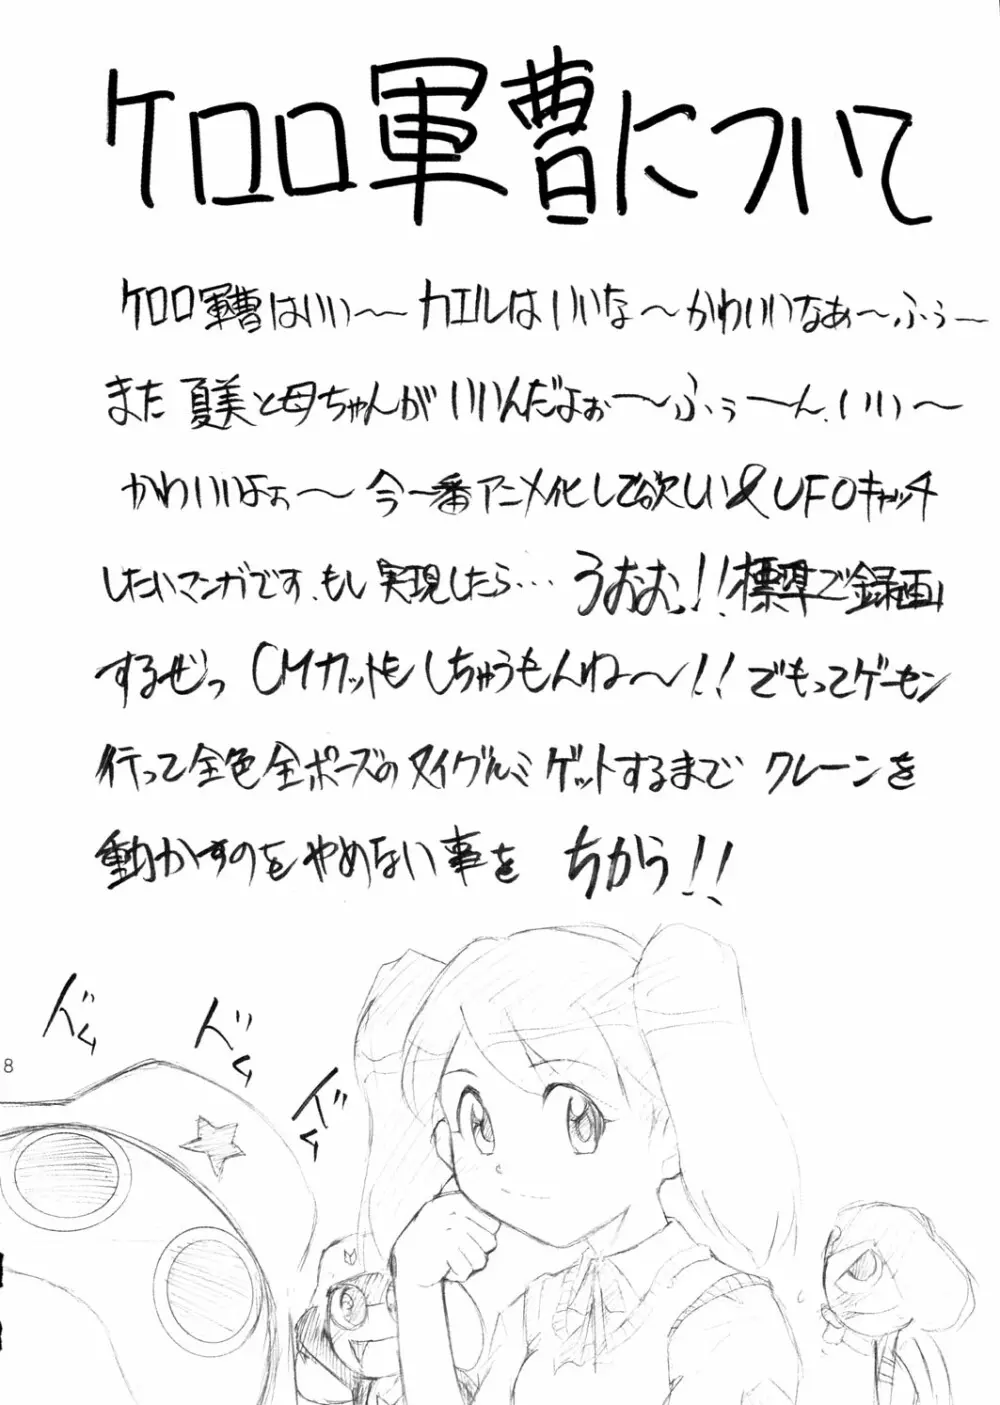 ケロロ軍曹について
ケロロ軍曹はいい〜カエルはいいな〜かわいいなぁ〜ふぅ〜
また夏美と母ちゃんがいいんだよぉ〜ふぅーん、いい〜
かわいいよぉ〜今一番アニメ化して欲しい&UFOキャッチ
したいマンガです、もし実現したら…うおお!!標準で録画
するぜっCMカットもしちゃうもんね〜!!でもってゲーセン
行って全色全ポーズのヌイグルミゲットするまでクレーンを
動かすのをやめない事をちかう!!
ドム
ドム
ドム
8